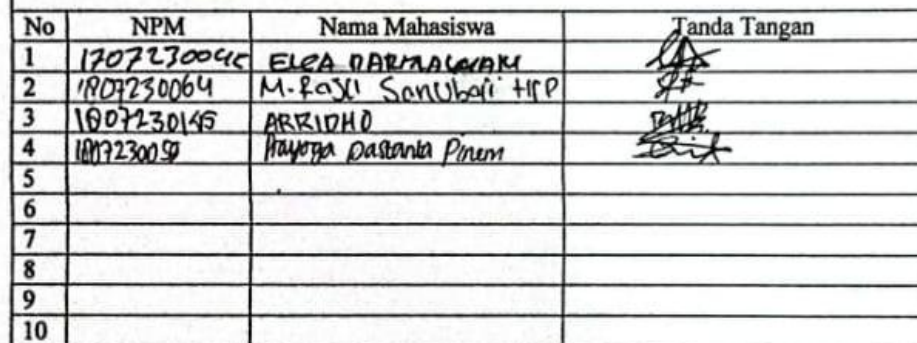 No NPM Nama Mahasiswa Tanda Tangan
1 1707230045 ELZA DARMAWAN
2 1807230064 M. Rajli Sanubari HRP
3 1807230145 ARRIDHO
4 1807230059 Prayoga Pastanta Pinem
5
6
7
8
9
10